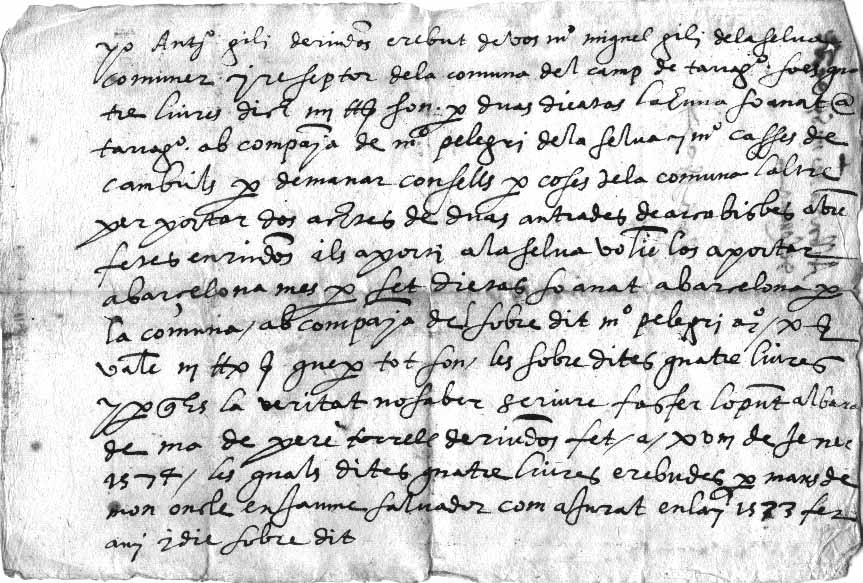 yo Antº gili deriudoms e rebut de vos mº miquel gili de la selva
comuner y reseptor de la comuna del camp de tarragº. so es qua
tre liures dich iiii ₶ son. p duas dietas la una so anat a
tarragº. ab compañia de mº pelegri de la selva y mº casses de
cambrils p demanar consells p coses de la comuna laltre
per portar dos actes de duas antrades de arcabisbes
fetes en riudoms ils aporti a la selva los aportar
a barcelona mes p set dietas so anat a barcelona p
la comuna / ab compañia del sobre dit mº pelegri
que p tot son / les sobre dites quatre liures
y p es la veritat no saber scriure fas fer lo pnt albara
de ma de pere torrell de riudoms fet / a / xviii de Jener
1574 / les quals dites quatre liures e rebudes p mans de
mon oncle en Jaume salvador com asurat en lany 1573 fet
ani y die sobre dit